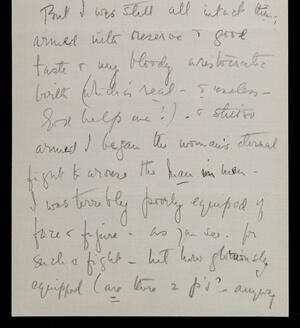 But I was still all intact then,
armed with reserve & good
taste & my bloody aristocratic
birth (which is real - & useless -
God helps me!). &
armed I began the woman's eternal
fight to arouse the man in men -
I was terribly poorly equiped of
face & figure - as you see. for
such a fight - but how gloriously
equipped (are there 2 p's? - anyway